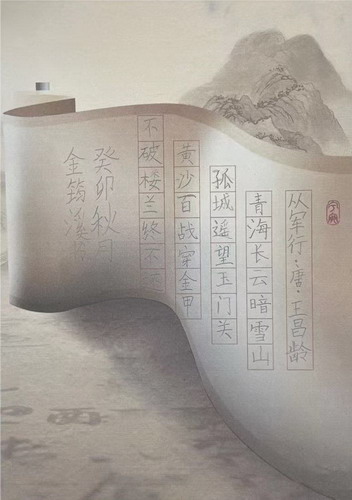 从军行·唐·王昌龄
青海长云暗雪山
孤城遥望玉门关
黄沙百战穿金甲
不破楼兰终不
癸卯秋月
金筠